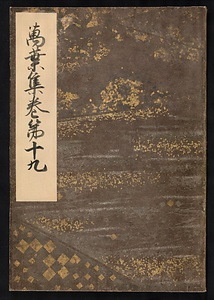 萬葉集卷第十九